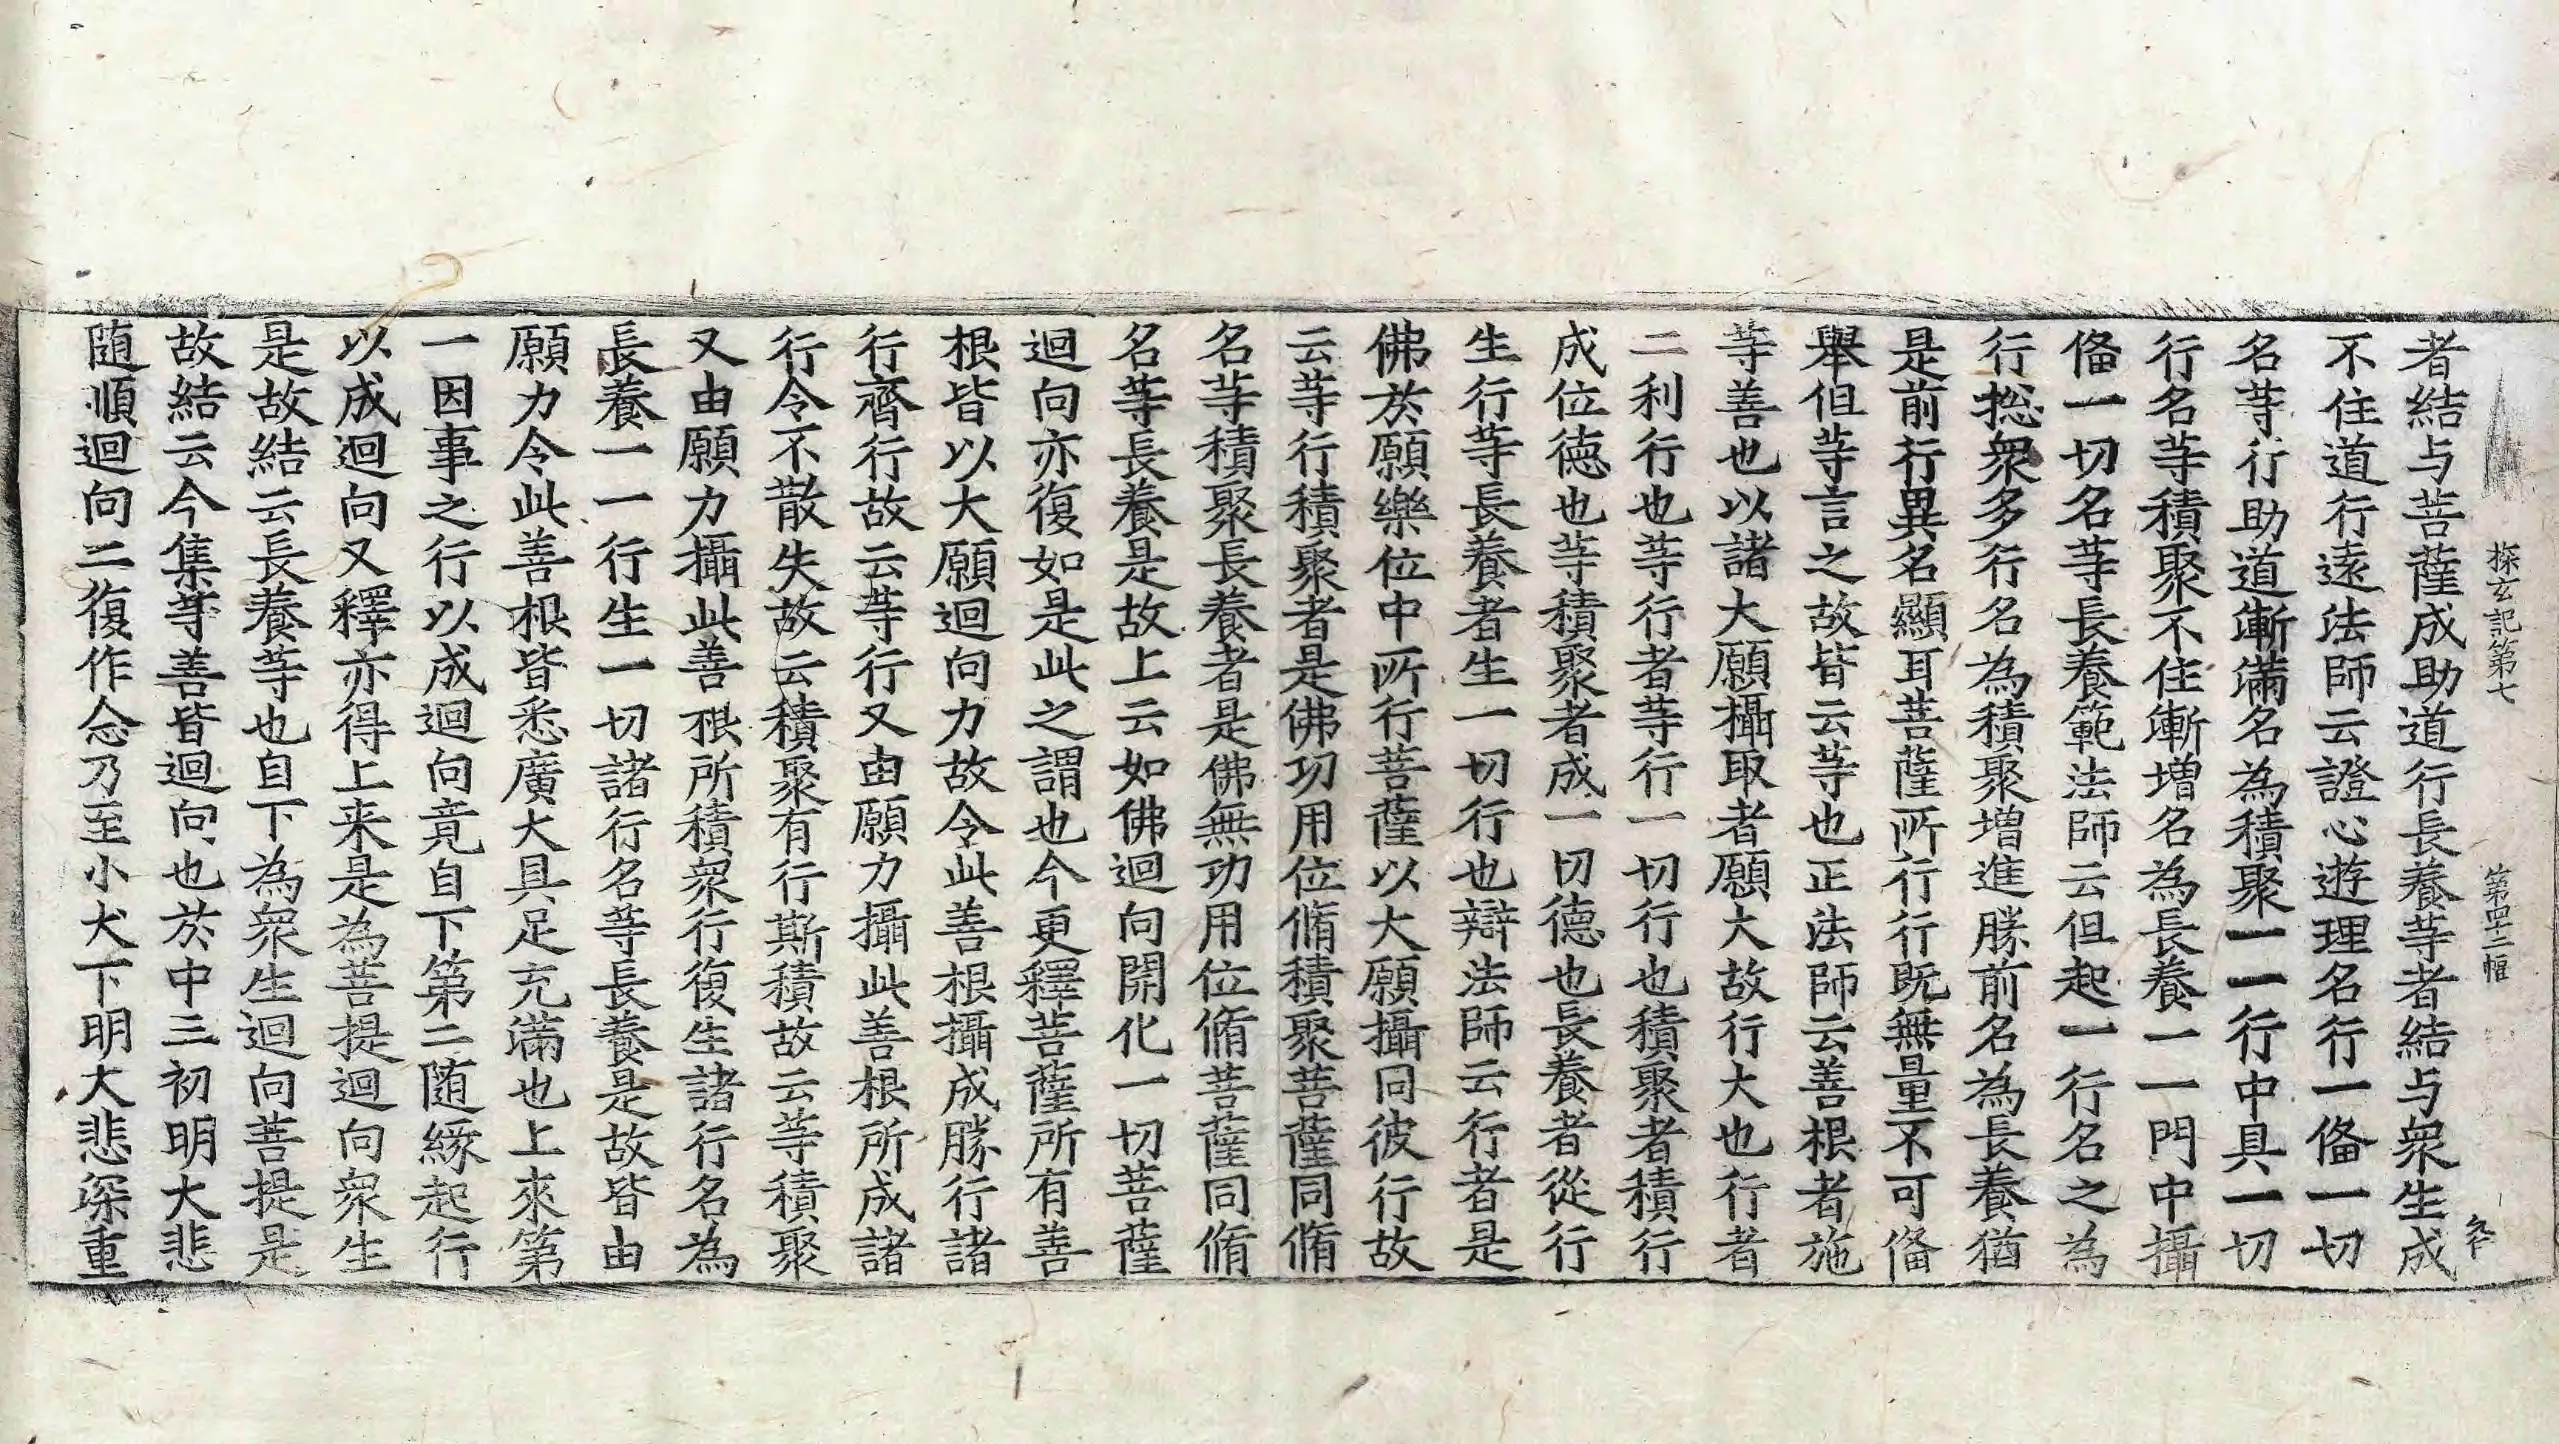 探玄記第七 第四十二幅
者結与菩薩成助道行長養等者結与衆生成
不住道行遠法師云證心遊理名行一俻一切
名等行助道漸滿名為積聚一一行中具一切
行名等積聚不住漸増名為長養一一門中攝
俻一切名等長養範法師云但起一行名之為
行捴衆多行名為積聚増進勝前名為長養猶
是前行異名顯耳菩薩所行行既無量不可俻
舉但等言之故皆云等也正法師云善根者施
等善也以諸大願攝取者願大故行大也行者
二利行也等行者等行一切行也積聚者積行
成位德也等積聚者成一切德也長養者從行
生行等長養者生一切行也辯法師云行者是
佛於願樂位中所行菩薩以大願攝同彼行故
云等行積聚者是佛功用位脩積聚菩薩同脩
名等積聚長養者是佛無功用位脩菩薩同脩
名等長養是故上云如佛迴向開化一切菩薩
迴向亦復如是此之謂也今更釋菩薩所有善
根皆以大願迴向力故令此善根攝成勝行諸
行齊行故云等行又由願力攝此善根所成諸
行令不散失故云積聚有行斯積故云等積聚
又由願力攝此善根所積衆行復生諸行名為
長養一一行生一切諸行名等長養是故皆由
願力令此善根皆悉廣大具足充滿也上來第
一因事之行以成迴向竟自下第二随緣起行
以成迴向又釋亦得上来是為菩提迴向衆生
是故結云長養等也自下為衆生迴向菩提是
故結云今集等善皆迴向也於中三初明大悲
随順迴向二復作念乃至小犬下明大悲深重